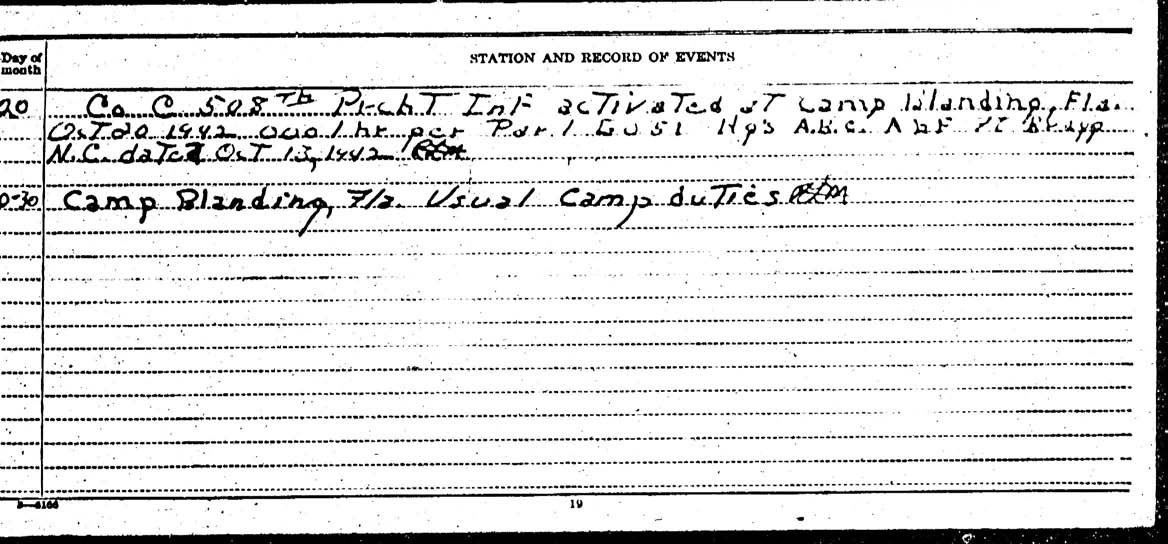 Day of month
STATION AND RECORD OF EVENTS
20 Co. C 508Th Prcht Inf activated at Camp Blanding, Fla.
Oct 20 1942 0001 hr per Par 1 GO 51 Hq's A.B.C. Ft Bragg
N.C. dated Oct 13, 1942
0-30 Camp Blanding, Fla. Usual Camp duties
19